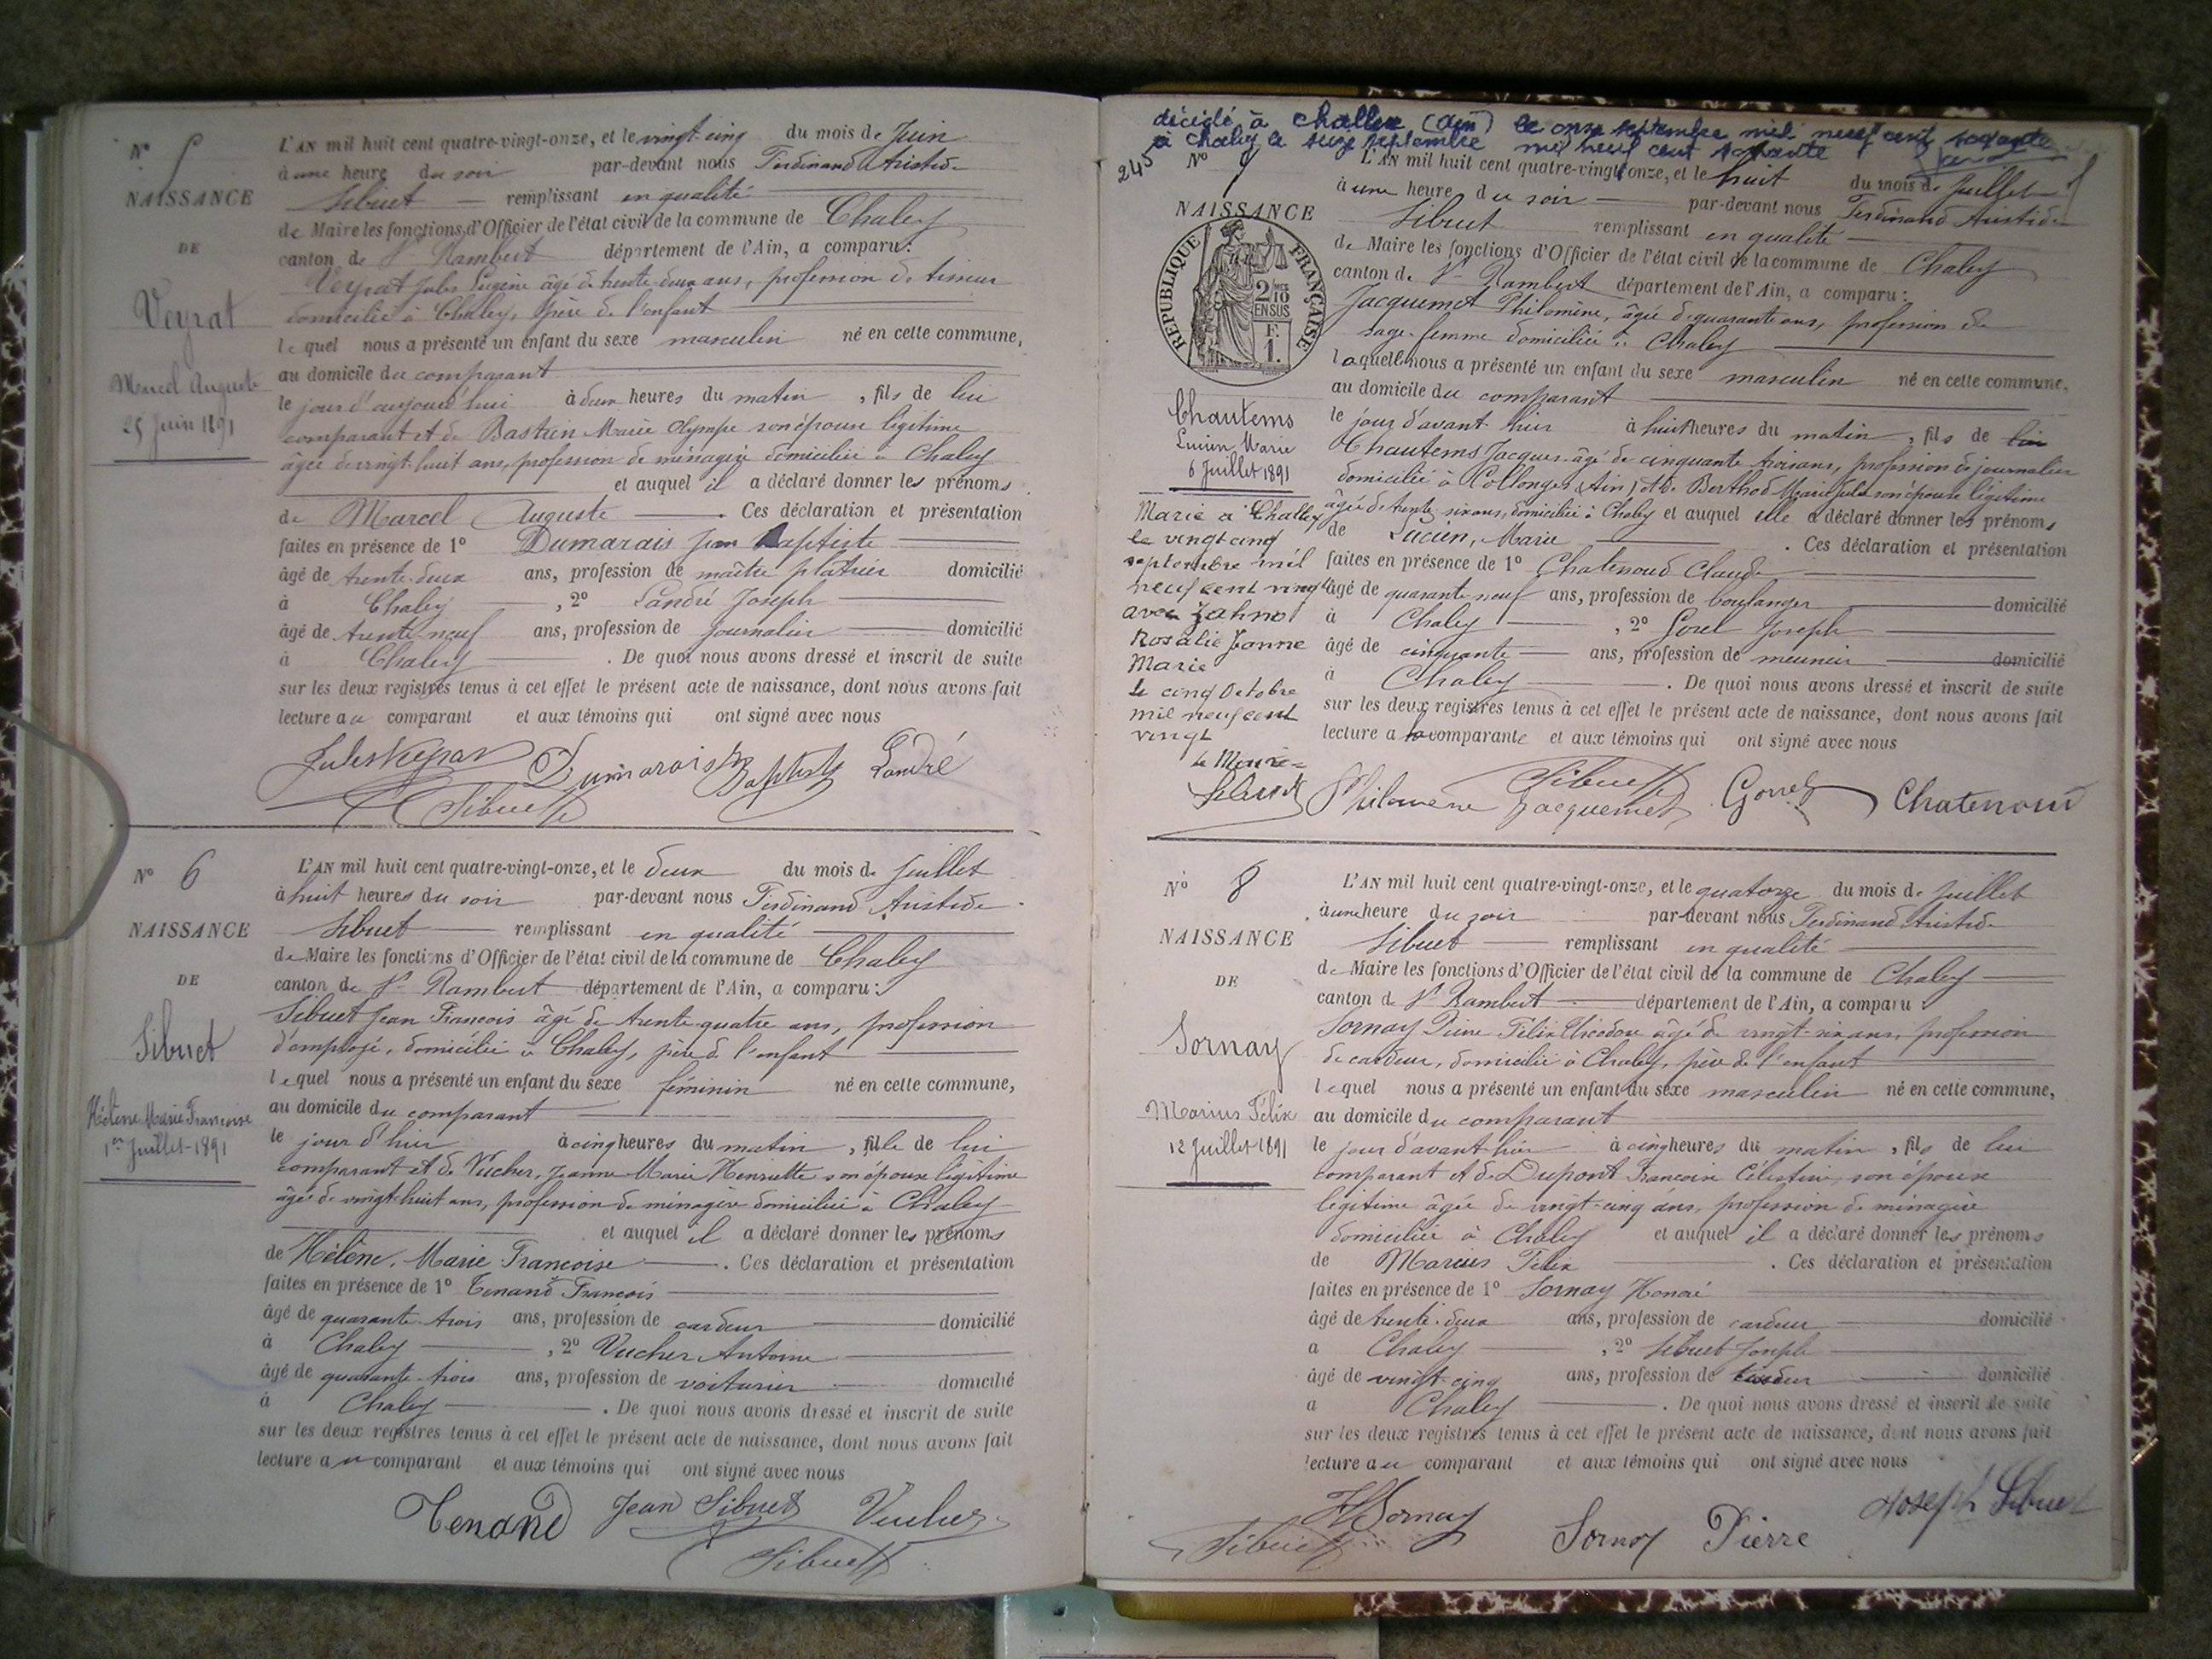 N° 5
NAISSANCE
DE
Veyrat
Marcel Auguste
25 Juin 1891
L'AN mil huit cent quatre-vingt-onze, et le vingt-cinq du mois de Juin
à une heure du soir par-devant nous Ferdinand Aristide
Sibuet remplissant en qualité
de Maire les fonctions d'Officier de l'état civil de la commune de Chaley
canton de St Rambert département de l'Ain, a comparu :
Veyrat Jules Eugène âgé de trente-deux ans, profession de tisseur
domicilié à Chaley, père de l'enfant
lequel nous a présenté un enfant du sexe masculin né en cette commune,
au domicile du comparant
le jour d'aujourd'hui à deux heures du matin, fils de lui
comparant et de Bastrin Marie Olympe son épouse légitime
âgée de vingt-huit ans, profession de ménagère domiciliée à Chaley
et auquel il a déclaré donner les prénoms
de Marcel Auguste . Ces déclaration et présentation
faites en présence de 1° Dumarais Jean Baptiste
âgé de trente-deux ans, profession de maître plâtrier domicilié
à Chaley , 2° Landré Joseph
âgé de trente-neuf ans, profession de journalier domicilié
à Chaley . De quoi nous avons dressé et inscrit de suite
sur les deux registres tenus à cet effet le présent acte de naissance, dont nous avons fait
lecture au comparant et aux témoins qui ont signé avec nous
Jules Veyrat Dumarais Baptiste Landré
Sibuet
N° 6
NAISSANCE
DE
Sibuet
Hélène Marie Francoise
1er Juillet 1891
L'AN mil huit cent quatre-vingt-onze, et le deux du mois de Juillet
à huit heures du soir par-devant nous Ferdinand Aristide
Sibuet remplissant en qualité
de Maire les fonctions d'Officier de l'état civil de la commune de Chaley
canton de St Rambert département de l'Ain, a comparu :
Sibuet Jean Francois âgé de trente-quatre ans, profession
d'employé, domicilié à Chaley, père de l'enfant
lequel nous a présenté un enfant du sexe feminin né en cette commune,
au domicile du comparant
le jour d'hier à cinq heures du matin, fille de lui
comparant et de Vucher, Jeanne Marie Henriette son épouse légitime
âgée de vingt-huit ans, profession de ménagère domiciliée à Chaley
et auquel il a déclaré donner les prénoms
de Hélène, Marie Francoise . Ces déclaration et présentation
faites en présence de 1° Tenand François
âgé de quarante-trois ans, profession de cardeur domicilié
à Chaley , 2° Vucher Antoine
âgé de quarante-trois ans, profession de voiturier domicilié
à Chaley . De quoi nous avons dressé et inscrit de suite
sur les deux registres tenus à cet effet le présent acte de naissance, dont nous avons fait
lecture au comparant et aux témoins qui ont signé avec nous
Tenand Jean Sibuet Vucher
Sibuet
décédé à Challex (Ain) le onze septembre mil neuf cent soixante
à Chaley le seize septembre mil neuf cent soixante
245
N° 7
NAISSANCE
RÉPUBLIQUE FRANÇAISE
2/10 EN SUS
F. 1.
Chautems
Lucien Marie
6 Juillet 1891
Marié à Challex
le vingt cinq
septembre mil
neuf cent vingt
avec Zahnd
Rosalie Jeanne
Marie
le cinq Octobre
mil neuf cent
vingt
le Maire
L'AN mil huit cent quatre-vingt-onze, et le huit du mois de Juillet
à une heure du soir par-devant nous Ferdinand Aristide
Sibuet remplissant en qualité
de Maire les fonctions d'Officier de l'état civil de la commune de Chaley
canton de St Rambert département de l'Ain, a comparu :
Jacquemet Philomène, âgée de quarante ans, profession de
sage-femme domiciliée à Chaley
laquelle nous a présenté un enfant du sexe masculin né en cette commune,
au domicile du comparant
le jour d'avant-hier à huit heures du matin, fils de lui
Chautems Jacques âgé de cinquante trois ans, profession de journalier
domicilié à Collonges (Ain) et de Berthod Marie Julie son épouse légitime
âgée de trente-six ans, domiciliée à Chaley et auquel elle a déclaré donner les prénoms
de Lucien, Marie . Ces déclaration et présentation
faites en présence de 1° Chatenoud Claude
âgé de quarante neuf ans, profession de boulanger domicilié
à Chaley , 2° Gorel Joseph
âgé de cinquante ans, profession de meunier domicilié
à Chaley . De quoi nous avons dressé et inscrit de suite
sur les deux registres tenus à cet effet le présent acte de naissance, dont nous avons fait
lecture a la comparante et aux témoins qui ont signé avec nous
Philomène Jacquemet Sibuet Gorrel Chatenoud
N° 8
NAISSANCE
DE
Sornay
Marius Félix
12 Juillet 1891
L'AN mil huit cent quatre-vingt-onze, et le quatorze du mois de Juillet
à une heure du soir par-devant nous Ferdinand Aristide
Sibuet remplissant en qualité
de Maire les fonctions d'Officier de l'état civil de la commune de Chaley
canton de St Rambert département de l'Ain, a comparu
Sornay Pierre Félix Théodore âgé de vingt-six ans, profession
de cardeur, domicilié à Chaley, père de l'enfant
lequel nous a présenté un enfant du sexe masculin né en cette commune,
au domicile du comparant
le jour d'avant-hier à cinq heures du matin, fils de lui
comparant et de Dupont Francoise Célestine, son épouse
légitime âgée de vingt-cinq ans, profession de ménagère
domiciliée à Chaley et auquel il a déclaré donner les prénoms
de Marius Félix . Ces déclaration et présentation
faites en présence de 1° Sornay Honoré
âgé de trente-deux ans, profession de cardeur domicilié
à Chaley , 2° Sibuet Joseph
âgé de vingt-cinq ans, profession de domicilié
à Chaley . De quoi nous avons dressé et inscrit de suite
sur les deux registres tenus à cet effet le présent acte de naissance, dont nous avons fait
lecture au comparant et aux témoins qui ont signé avec nous
H Sornay Joseph Sibuet
Sibuet Sornay Pierre